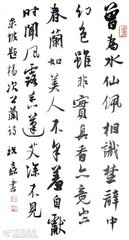 曾為水仙佩相識楚辭中
幻色雖非實真香亦竟空
春蘭如美人不采羞自獻
時聞風露香蓬艾深不見
東坡題楊次公蘭詩